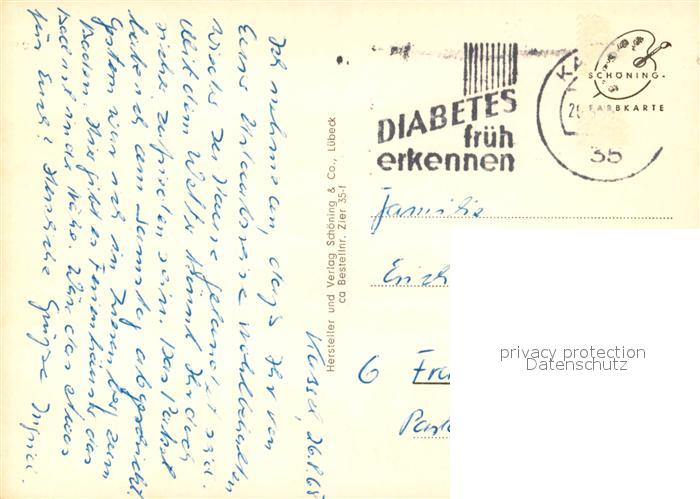 Kassel, 26.8.68
Ich nehme an, dass Ihr von
Eurer Urlaubsreise wohlbehalten
wieder zu Hause gelandet seid.
Mit dem Wetter könnt Ihr doch
sicher zufrieden sein. Das Paket
habe ich am Samstag abgeschickt.
Gestern war ich in Zierenberg zum
Baden. Hier gibt es Ferienhäuser das
Bad ist in der Nähe. Wär das etwas
für Euch? Herzliche Grüsse
Hersteller und Verlag Schöning & Co., Lübeck
ca Bestellnr. Zier 35-f
DIABETES
früh
erkennen
35
SCHÖNING-
FARBKARTE
Familie
Erich
6 Fra
privacy protection
Datenschutz